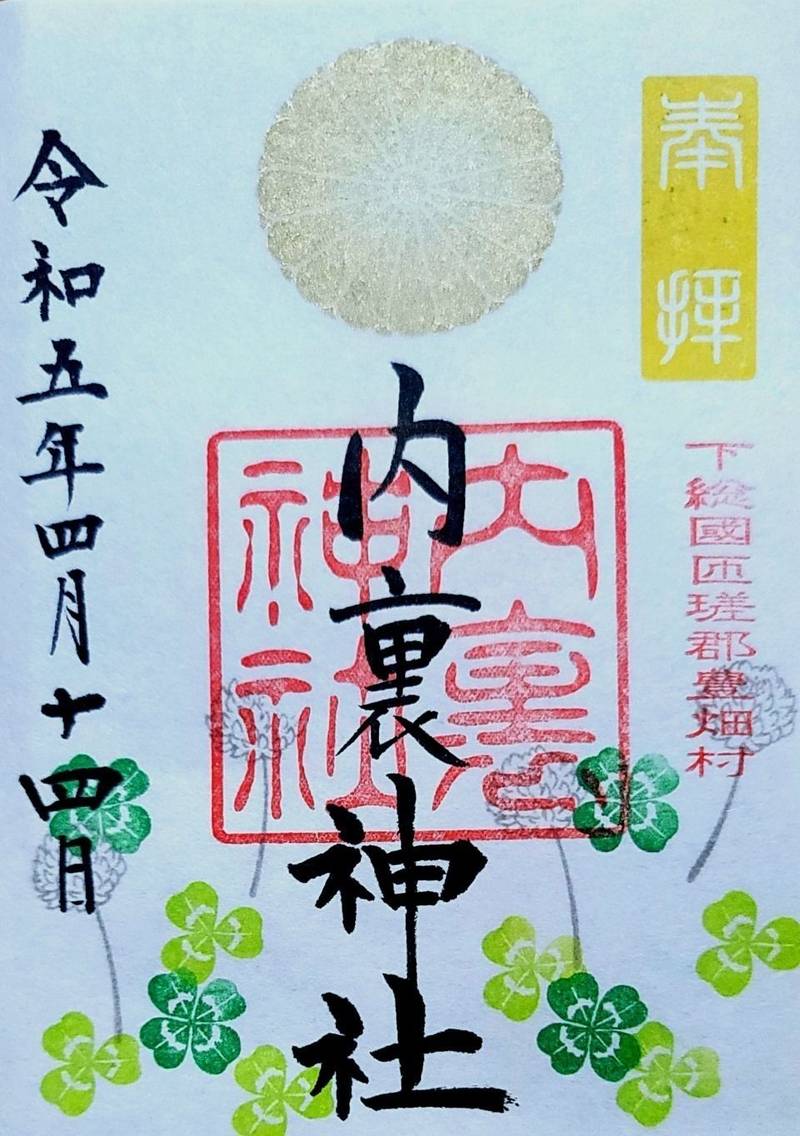 奉拝
下総國匝瑳郡豐畑村
内裏神社
内裏
神社
令和五年四月十四日